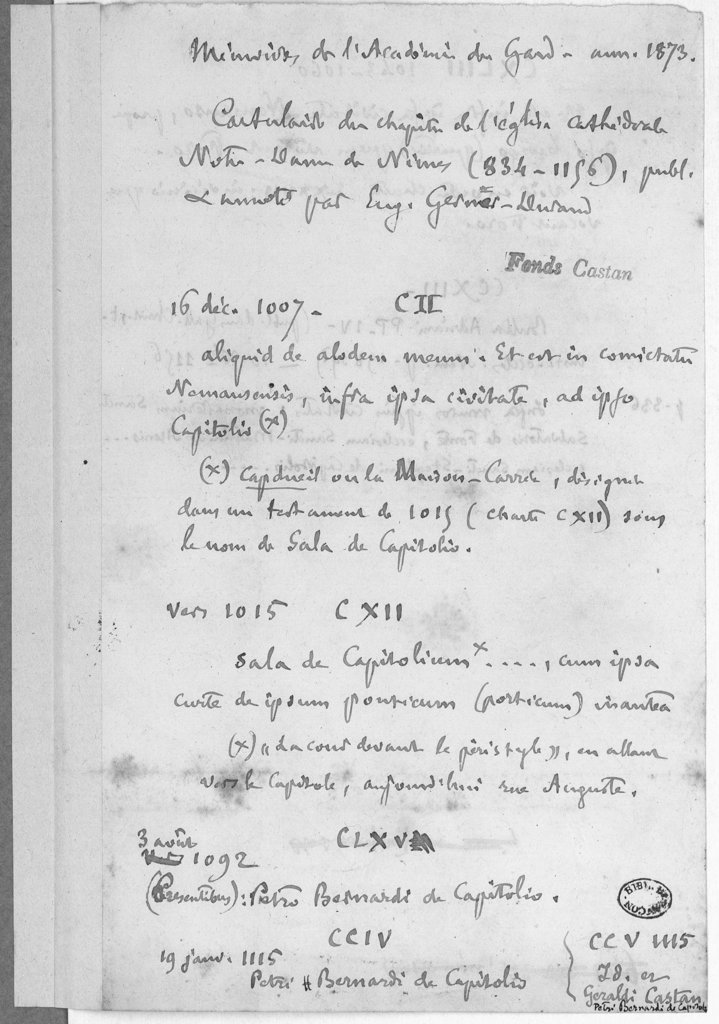 Mémoires de l'Académie du Gard - ann. 1873.
Cartulaire du chapitre de l'église cathédrale
Notre-Dame de Nîmes (834-1156), publ.
& annoté par Eug. Germer-Durand
Fonds Castan
16 déc. 1007. CII
aliquid de alodem meum. Et est in comictatu
Nemausensis, infra ipsa civitate, ad ipso
Capitolio (x)
(x) capdueil ou la Maison-Carrée, désignée
dans un testament de 1015 (charte CXII) sous
le nom de Sala de Capitolio.
Vers 1015 CXII
sala de Capitolium x ...., cum ipsa
curte de ipsum ponticum (porticum)
(x) « La cour devant le péristyle », en allant
vers le Capitole, aujourd'hui rue Auguste.
CLXV
3 août
1092
(Presentibus): Petro Bernardi de Capitolio.
CCIV
19 janv. 1115
Petri Bernardi de Capitolio
CCV 1115
Id. et
Geraldi Castan
Petri Bernardi de Capitolio